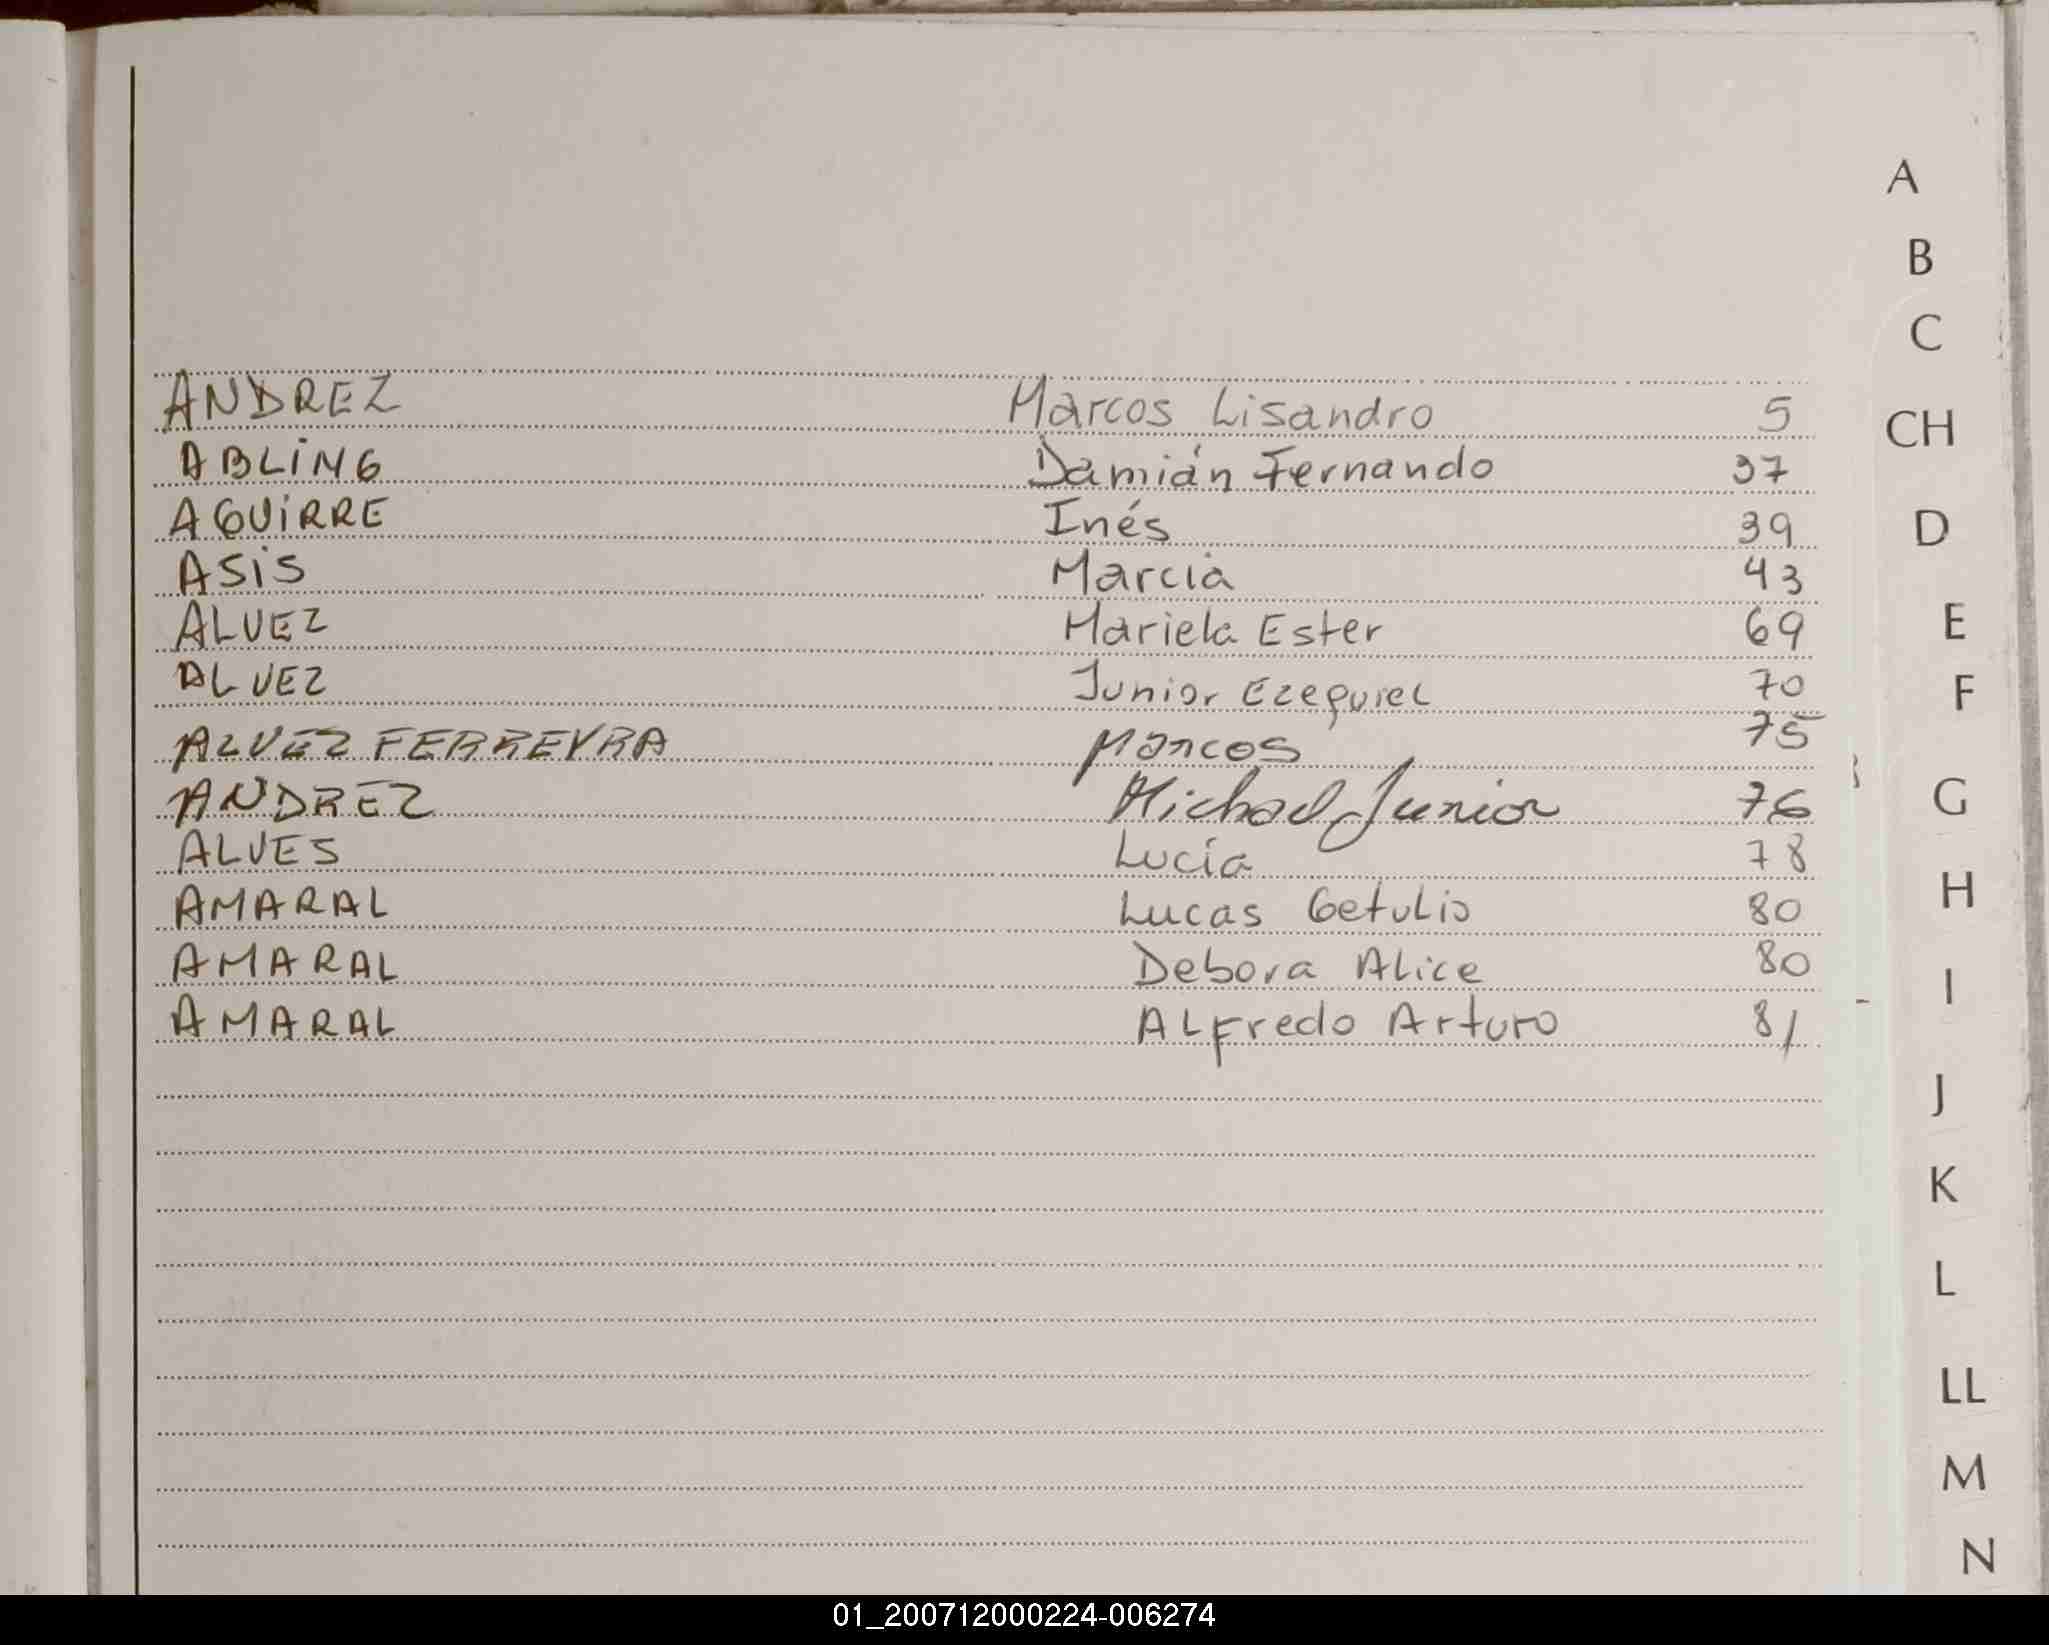 ANDREZ Marcos Lisandro 5
ABLING Damián Fernando 37
AGUIRRE Inés 39
ASIS Marcia 43
ALVEZ Mariela Ester 69
ALVEZ Junior Ezequiel 70
ALVEZ FERREYRA Marcos 75
ANDREZ Michael Junior 76
ALVES Lucía 78
AMARAL Lucas Getulio 80
AMARAL Debora Alice 80
AMARAL Alfredo Arturo 81
A
B
C
CH
D
E
F
G
H
I
J
K
L
LL
M
N
01_200712000224-006274